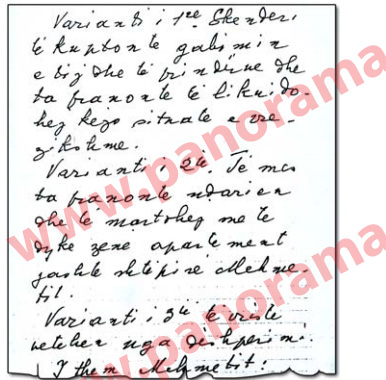 Varianti i 1re Skenderi
të kuptonte gabimin
e tij dhe të prindëve dhe
ta pranonte të likuido-
hej kejo situate e rre-
zikshme.
Varianti i 2të. Të mos
ta pranonte ndarjen
dhe të martohej me të
dyke zene apartement
jashtë shtëpisë Mehme-
tit.
Varianti i 3të të vriste
vetchen nga dëshperimi.
I them Mehmetit:
www.panorama
www.panorama
www.panorama